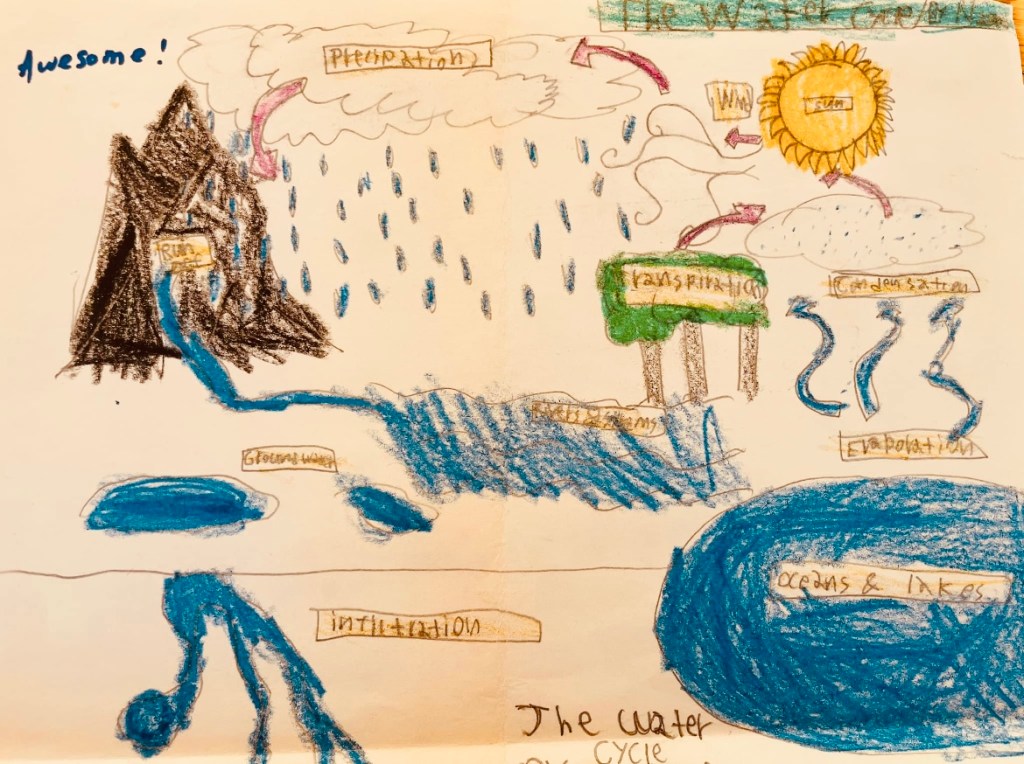 The Water
Awesome!
Precipation
Wind
Sun
Run
Transpiration
Condensation
Rivers & streams
Ground water
Evaporation
Oceans & lakes
infiltration
The Water
CYCLE